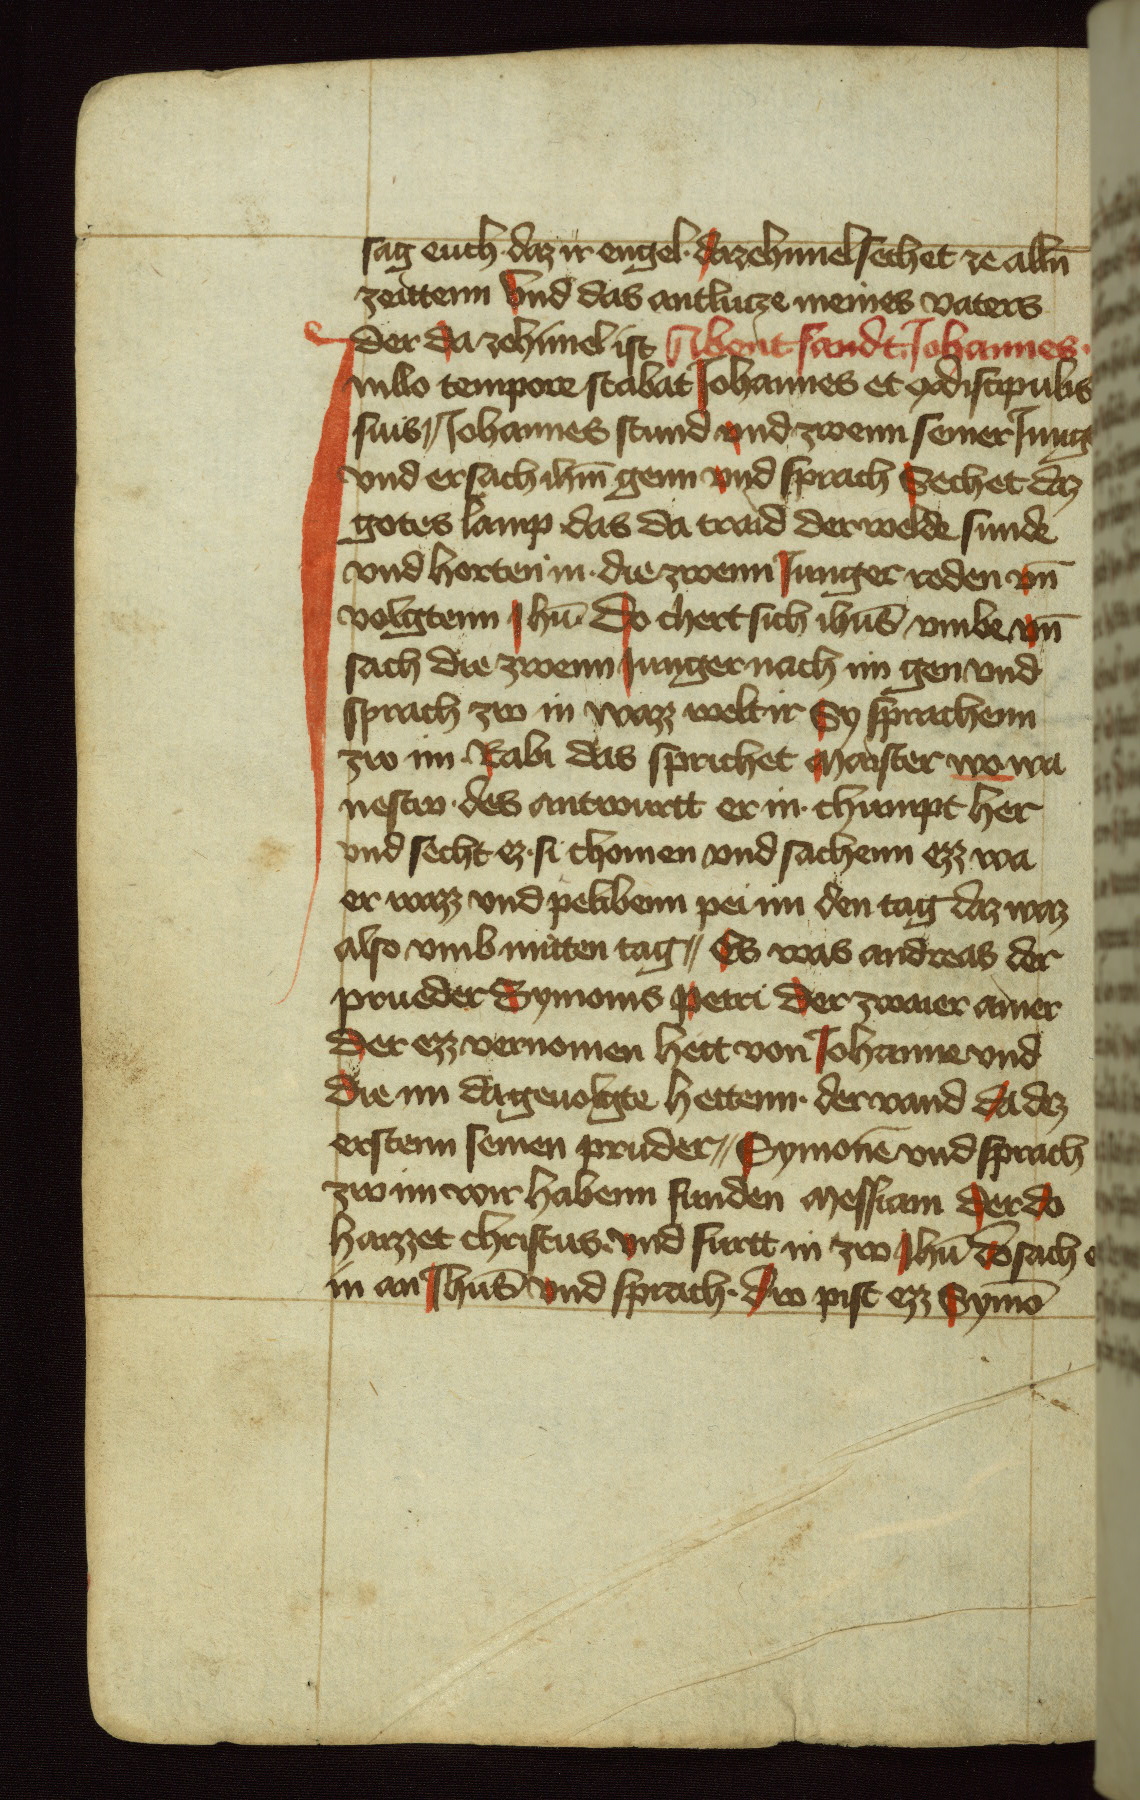 sag euch · daz ir engel · dazehimel sechet ze alln̄
zeittenn Vnd das antlucze meines vaters
der da ze himel ist Abent sandt Johannes ·
In illo tempore stabat Johannes et ex discipulis
suis // Johannes stund vnd zwenn seiner Jung
vnd er sach ihm̄ genn vnd sprach Sechet daz
gotes lamp das da traid der welde sunde
vnd horten in · die zwenn Junger reden vn̄
volgtenn Jhū · Do chert sich ihūs vmbe vn̄
sach die zwenn Junger nach im gen vnd
sprach zw in wazz welt ir Sy sprachenn
zw im · Rabi das sprichet Maister wo wa
nestw · des antwurtt er in · chumpt her
vnd secht ez · si chomen vnd sachenn ezz wa
er wazz vnd pelibenn pei im den tag daz waz
also vmb mitten tag // Es was andreas der
prueder Symonis Petri Der zwaier ainer
Der ezz vernomen hett von Johanne vnd
Die im da geuolgte hettenn · der vand da dez
erstenn seinen pruder // Symonē vnd sprach
zw im wir habenn funden Messiam Der do
haizzet christus · vnd furtt in zw Jhū do sach e
in an Jhūs vnd sprach · dw pist ezz Symō